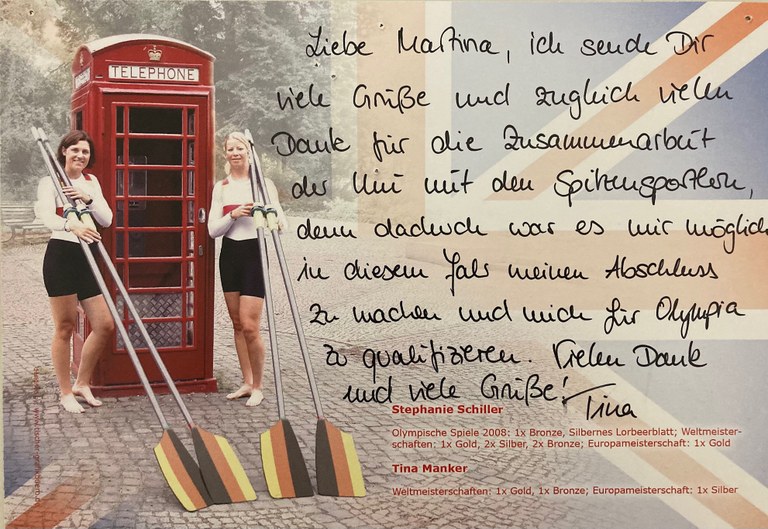 TELEPHONE
Liebe Martina, ich sende Dir
viele Grüße und zugleich vielen
Dank für die Zusammenarbeit
der Uni mit den Spitzensportlern,
denn dadurch war es mir möglich
in diesem Jahr meinen Abschluss
zu machen und mich für Olympia
zu qualifizieren. Vielen Dank
und viele Grüße! Tina
Stephanie Schiller
Olympische Spiele 2008: 1x Bronze, Silbernes Lorbeerblatt; Weltmeister-
schaften: 1x Gold, 2x Silber, 2x Bronze; Europameisterschaft: 1x Gold
Tina Manker
Weltmeisterschaften: 1x Gold, 1x Bronze; Europameisterschaft: 1x Silber